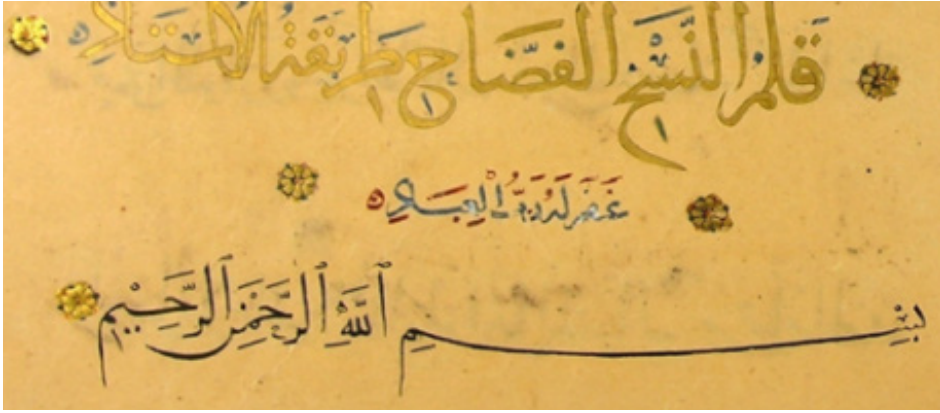 قلم النسخ الفضاح طريقة الاستاد
غفر له رب العباد
بِسْمِ ٱللَّهِ ٱلرَّحْمَٰنِ ٱلرَّحِيمِ